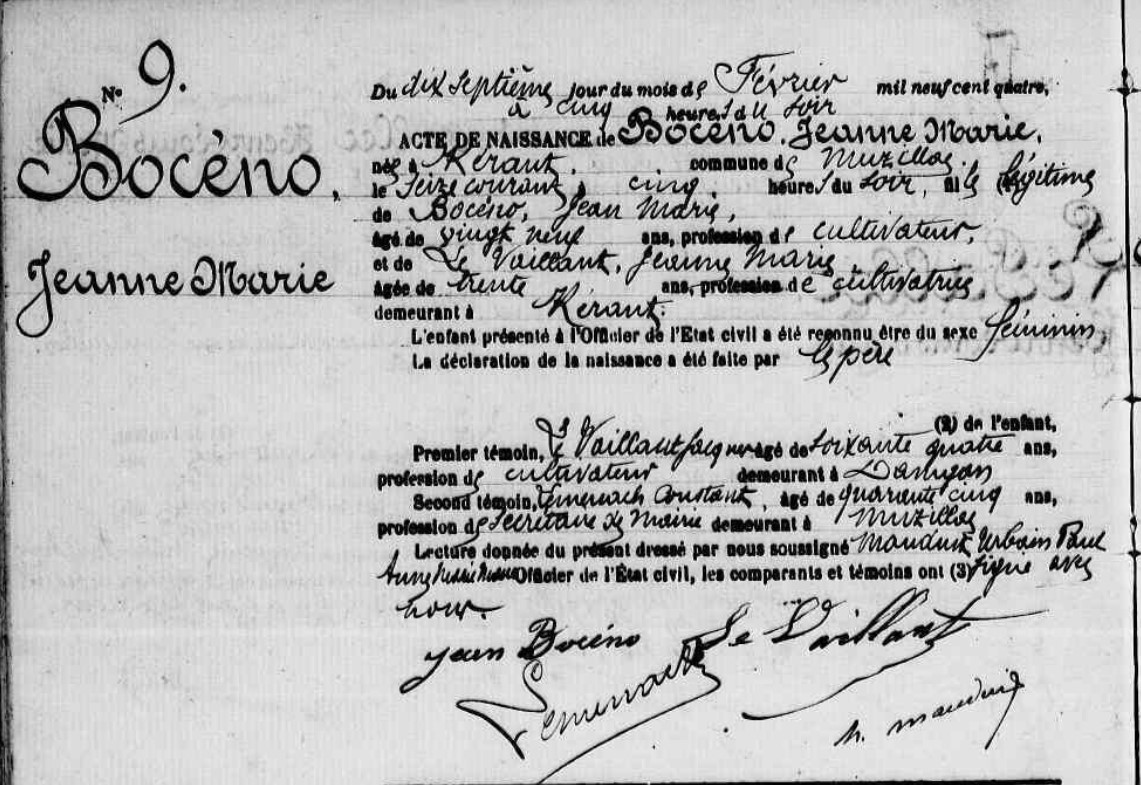 N° 9.
Bocéno,
Jeanne Marie
Du dix septième jour du mois de Février mil neuf cent quatre,
à cinq heures du soir
ACTE DE NAISSANCE de Bocéno, Jeanne Marie,
née à Kérant, commune de Muzillac.
le seize courant à cinq, heures du soir, fille légitime
de Bocéno, Jean Marie,
âgé de vingt neuf ans, profession de cultivateur,
et de Le Vaillant, Jeanne Marie,
âgée de trente ans, profession de cultivatrice,
demeurant à Kérant.
L'enfant présenté à l'Officier de l'Etat civil a été reconnu être du sexe féminin,
La déclaration de la naissance a été faite par le père
(2) de l'enfant,
Premier témoin, Le Vaillant Jacques âgé de soixante quatre ans,
profession de cultivateur demeurant à Damgan
Second témoin, Constant, âgé de quarante cinq ans,
profession de Secrétaire de Mairie demeurant à Muzillac
Lecture donnée du présent dressé par nous soussigné Mauduit Urbain Paul
Officier de l'État civil, les comparants et témoins ont (3) signé avec
nous.
Jean Bocéno Le Vaillant